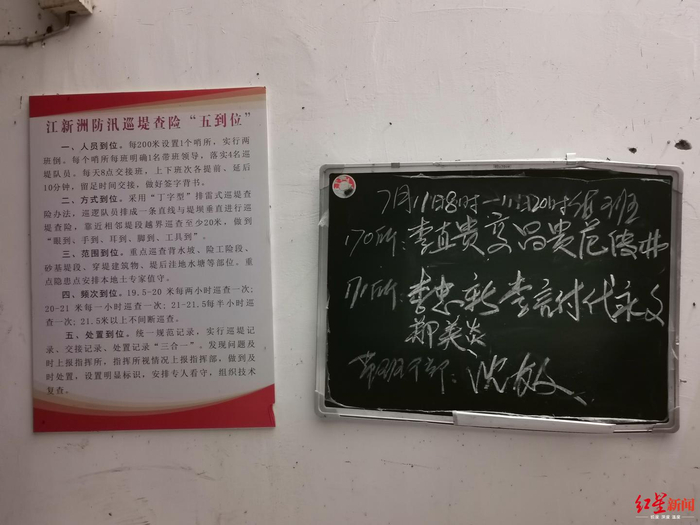 江新洲防汛巡堤查险“五到位”
一、人员到位。每200米设置1个哨所，实行两
班倒。每个哨所每班明确1名带班领导，落实4名巡
堤队员。每天8点交接班，上下班次各提前、延后
10分钟，留足时间交接，做好签字背书。
二、方式到位。采用“丁字型”排雷式巡堤查
险办法，巡逻队员排成一条直线与堤坝垂直进行巡
堤查险，靠近相邻堤段越界巡查至少20米，做到
“眼到、手到、耳到、脚到、工具到”。
三、范围到位。重点巡查背水坡、险工险段、
砂基堤段、穿堤建筑物、堤后洼地水塘等部位。重
点隐患点安排本地土专家值守。
四、频次到位。19.5-20 米每两小时巡查一次；
20-21 米每一小时巡查一次；21-21.5每半小时巡
查一次；21.5米以上不间断巡查。
五、处置到位。统一规范记录，实行巡堤记
录、交接记录、处置记录“三合一”。发现问题及
时上报指挥所，指挥所视情况上报指挥部，做到及
时处置，设置明显标识，安排专人看守，组织技术
复查。
7月11日8时一11日20时值班
170所：李真贵
171所：李忠新 李言付 代永文
带班干部：沈敏
红星新闻